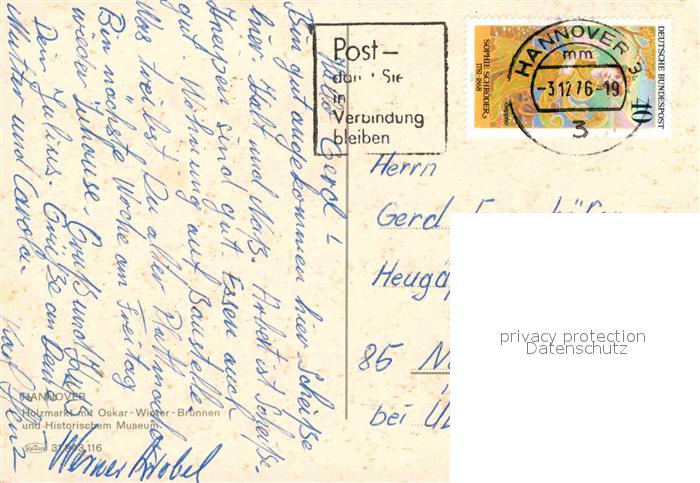 Mein Gerd!
Bin gut angekommen hier Scheiße
hier kalt und Naß. Arbeit ist Scheiße.
Kneipen sind gut. Essen auch
gut. Wohnung auf Baustelle
Was treibst Du alter
Bin nächste Woche am Freitag
wieder Zuhause. Gruß und
Dein Julius. Grüße an Deine
Mutter und Carola.
Karl Heinz
Werner
HANNOVER
Holzmarkt mit Oskar-Winter-Brunnen
und Historischem Museum
Post –
damit Sie
in
Verbindung
bleiben
HANNOVER 3
mm
-3.12.76-19
3
SOPHIE SCHRÖDER
1781-1868
Sappho
DEUTSCHE BUNDESPOST
40
Herrn
Gerd
85 N
bei
privacy protection
Datenschutz